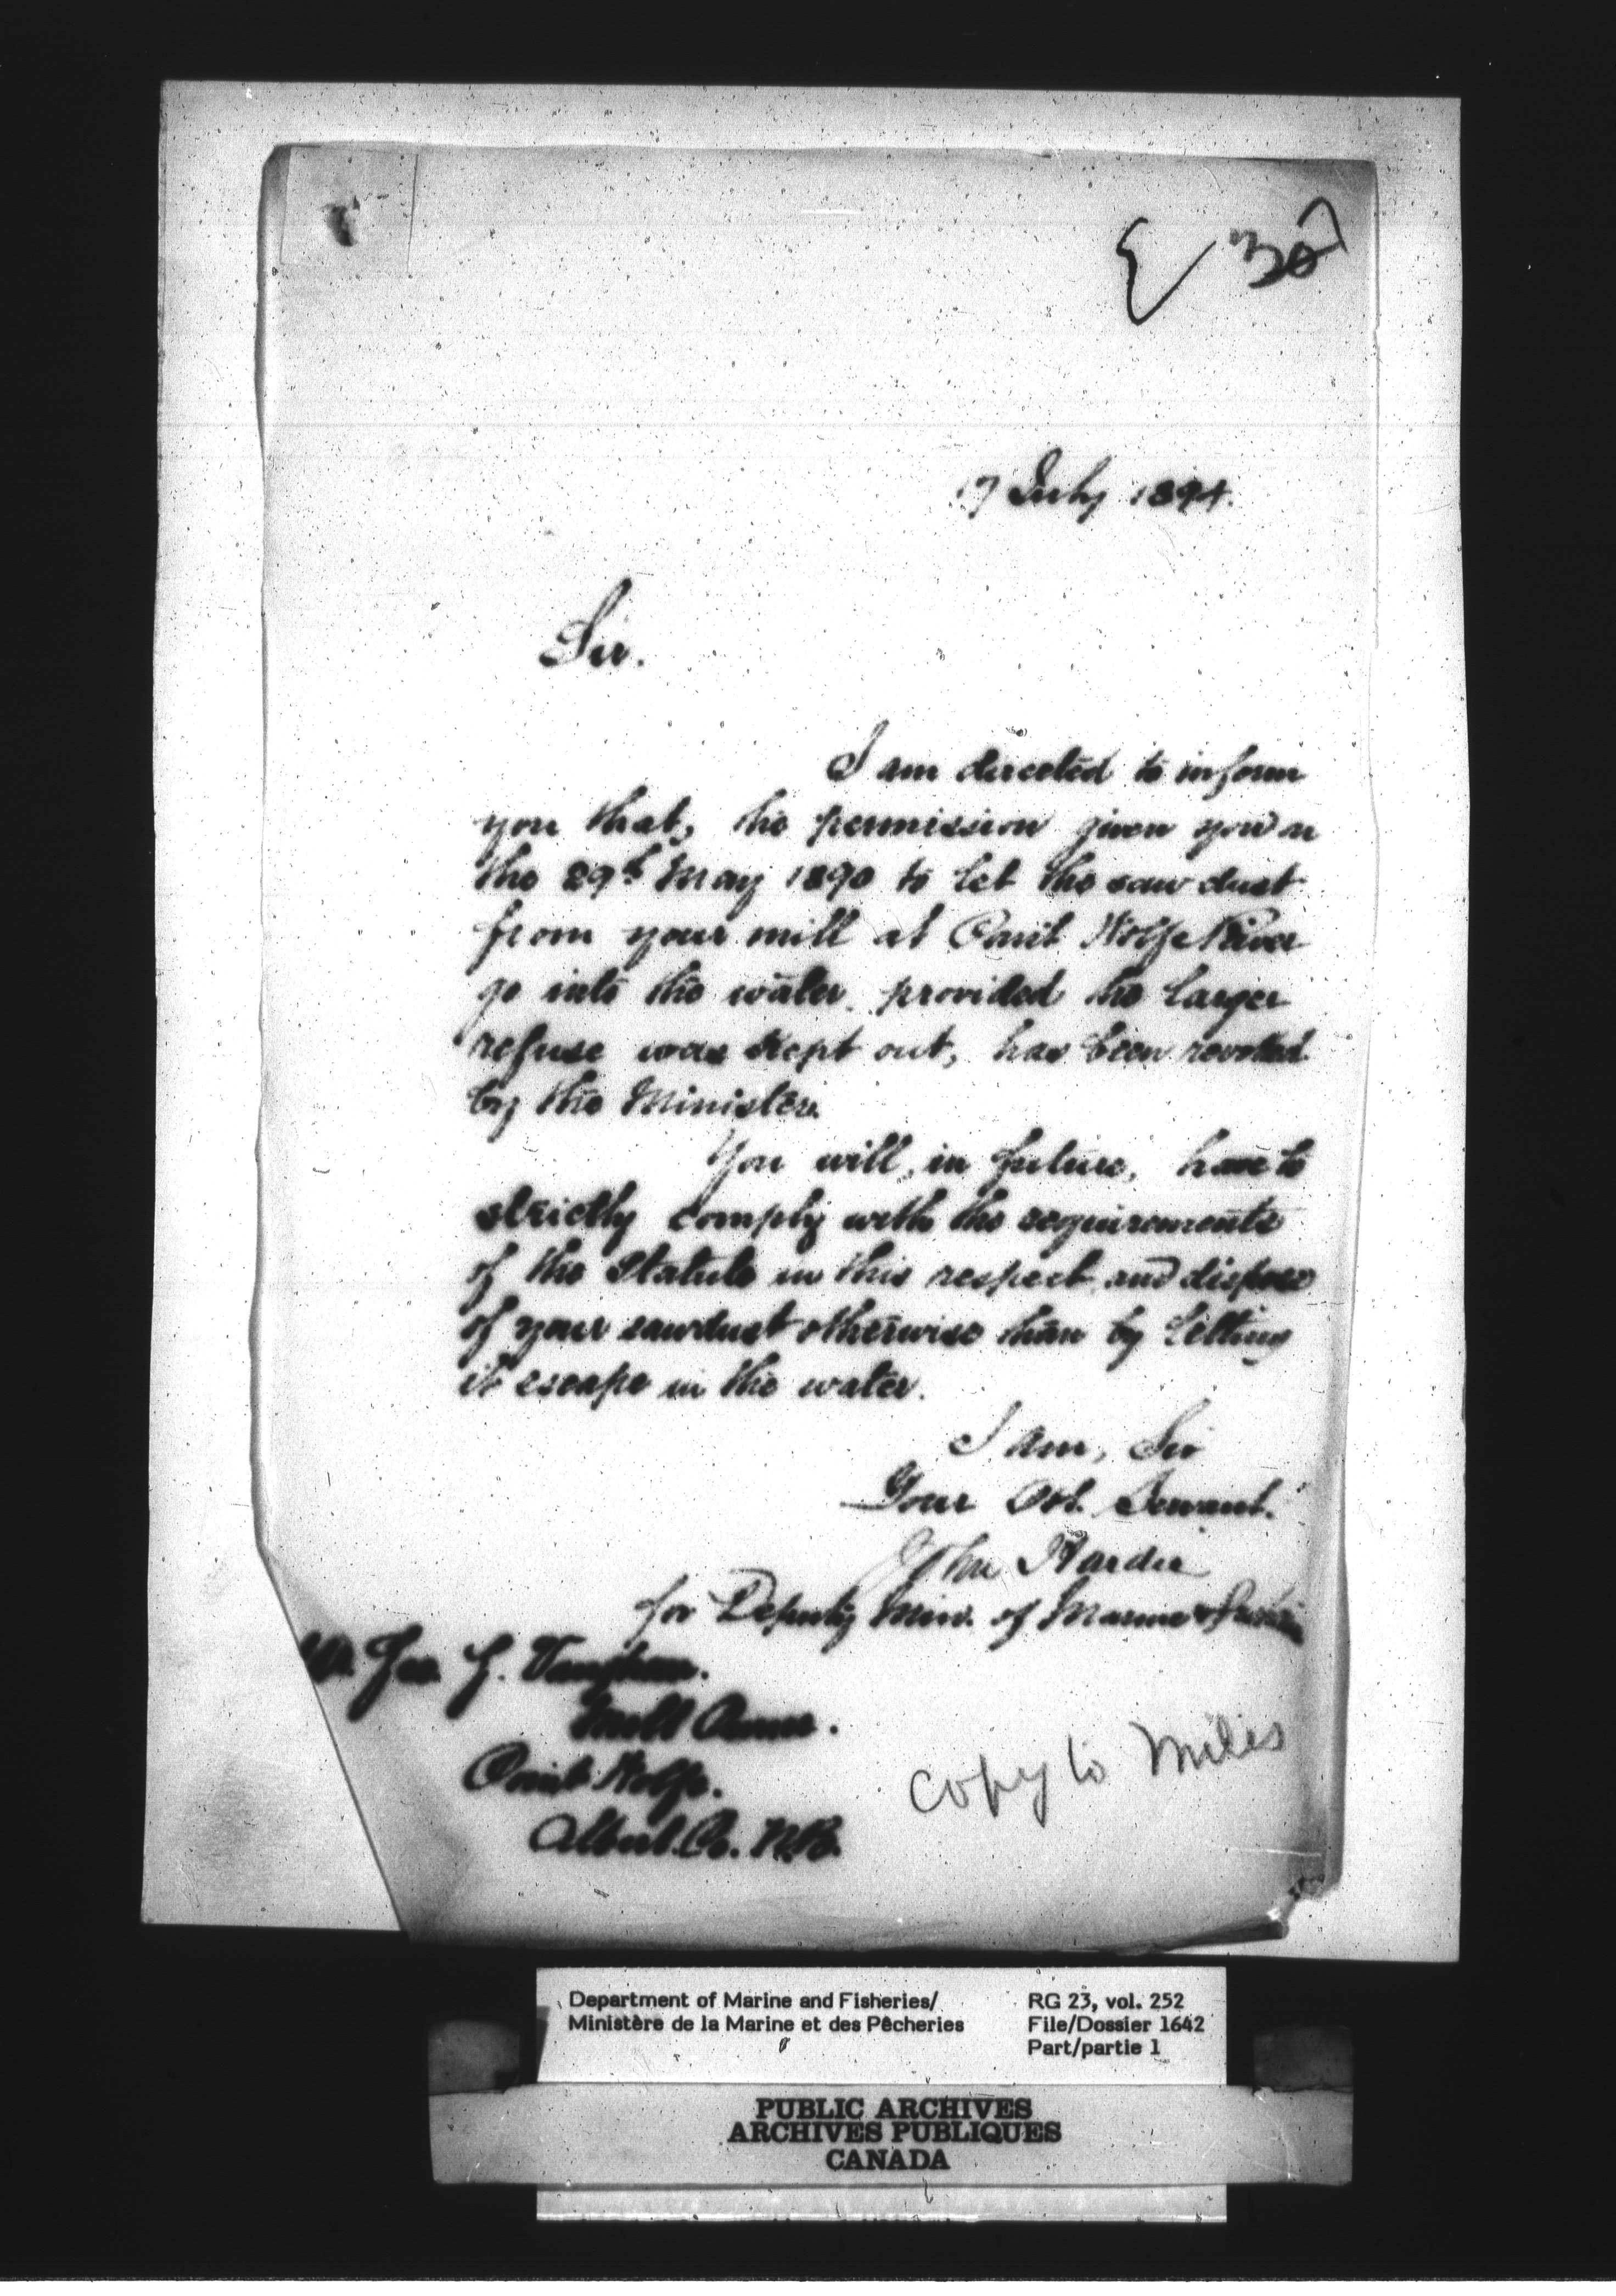 30
17 July 1894.
Sir.
I am directed to inform
you that, the permission given you on
the 29th May 1890 to let the saw dust
from your mill at Point Wolfe River
go into the water provided the larger
refuse was kept out, has been revoked
by the Minister.
You will, in future, have to
strictly comply with the requirements
of the Statute in this respect and dispose
of your sawdust otherwise than by letting
it escape in the water.
I am, Sir
Your Obt. Servant.
John Hardie
for Deputy Min. of Marine & Fisheries
Geo. J. Vaughan.
Mill Owner.
Point Wolfe.
Albert Co. N.B.
Copy to Miles
Department of Marine and Fisheries/ RG 23, vol. 252
Ministère de la Marine et des Pêcheries File/Dossier 1642
Part/partie 1
PUBLIC ARCHIVES
ARCHIVES PUBLIQUES
CANADA